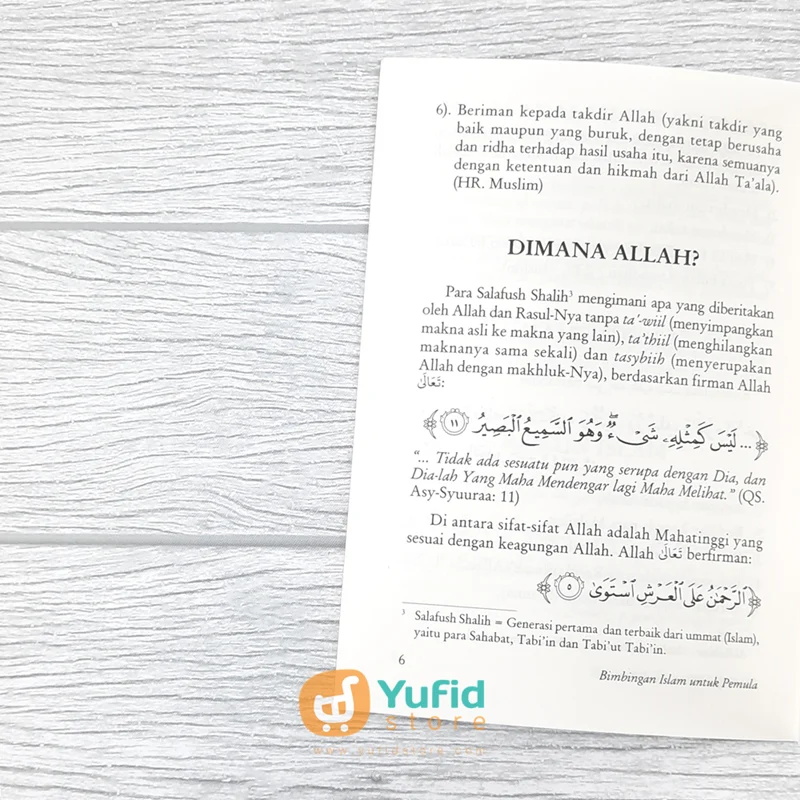 6). Beriman kepada takdir Allah (yakni takdir yang
baik maupun yang buruk, dengan tetap berusaha
dan ridha terhadap hasil usaha itu, karena semuanya
dengan ketentuan dan hikmah dari Allah Ta'ala).
(HR. Muslim)
DIMANA ALLAH?
Para Salafush Shalih³ mengimani apa yang diberitakan
oleh Allah dan Rasul-Nya tanpa ta'-wiil (menyimpangkan
makna asli ke makna yang lain), ta'thiil (menghilangkan
maknanya sama sekali) dan tasybiih (menyerupakan
Allah dengan makhluk-Nya), berdasarkan firman Allah
تَعَالَى:
... لَيْسَ كَمِثْلِهِۦ شَىْءٌ ۖ وَهُوَ ٱلسَّمِيعُ ٱلْبَصِيرُ ١١
“... Tidak ada sesuatu pun yang serupa dengan Dia, dan
Dia-lah Yang Maha Mendengar lagi Maha Melihat.” (QS.
Asy-Syuuraa: 11)
Di antara sifat-sifat Allah adalah Mahatinggi yang
sesuai dengan keagungan Allah. Allah تَعَالَى berfirman:
ٱلرَّحْمَٰنُ عَلَى ٱلْعَرْشِ ٱسْتَوَىٰ ٥
³ Salafush Shalih = Generasi pertama dan terbaik dari ummat (Islam),
yaitu para Sahabat, Tabi'in dan Tabi'ut Tabi'in.
6
Bimbingan Islam untuk Pemula
Yufid
store
www.yufidstore.com